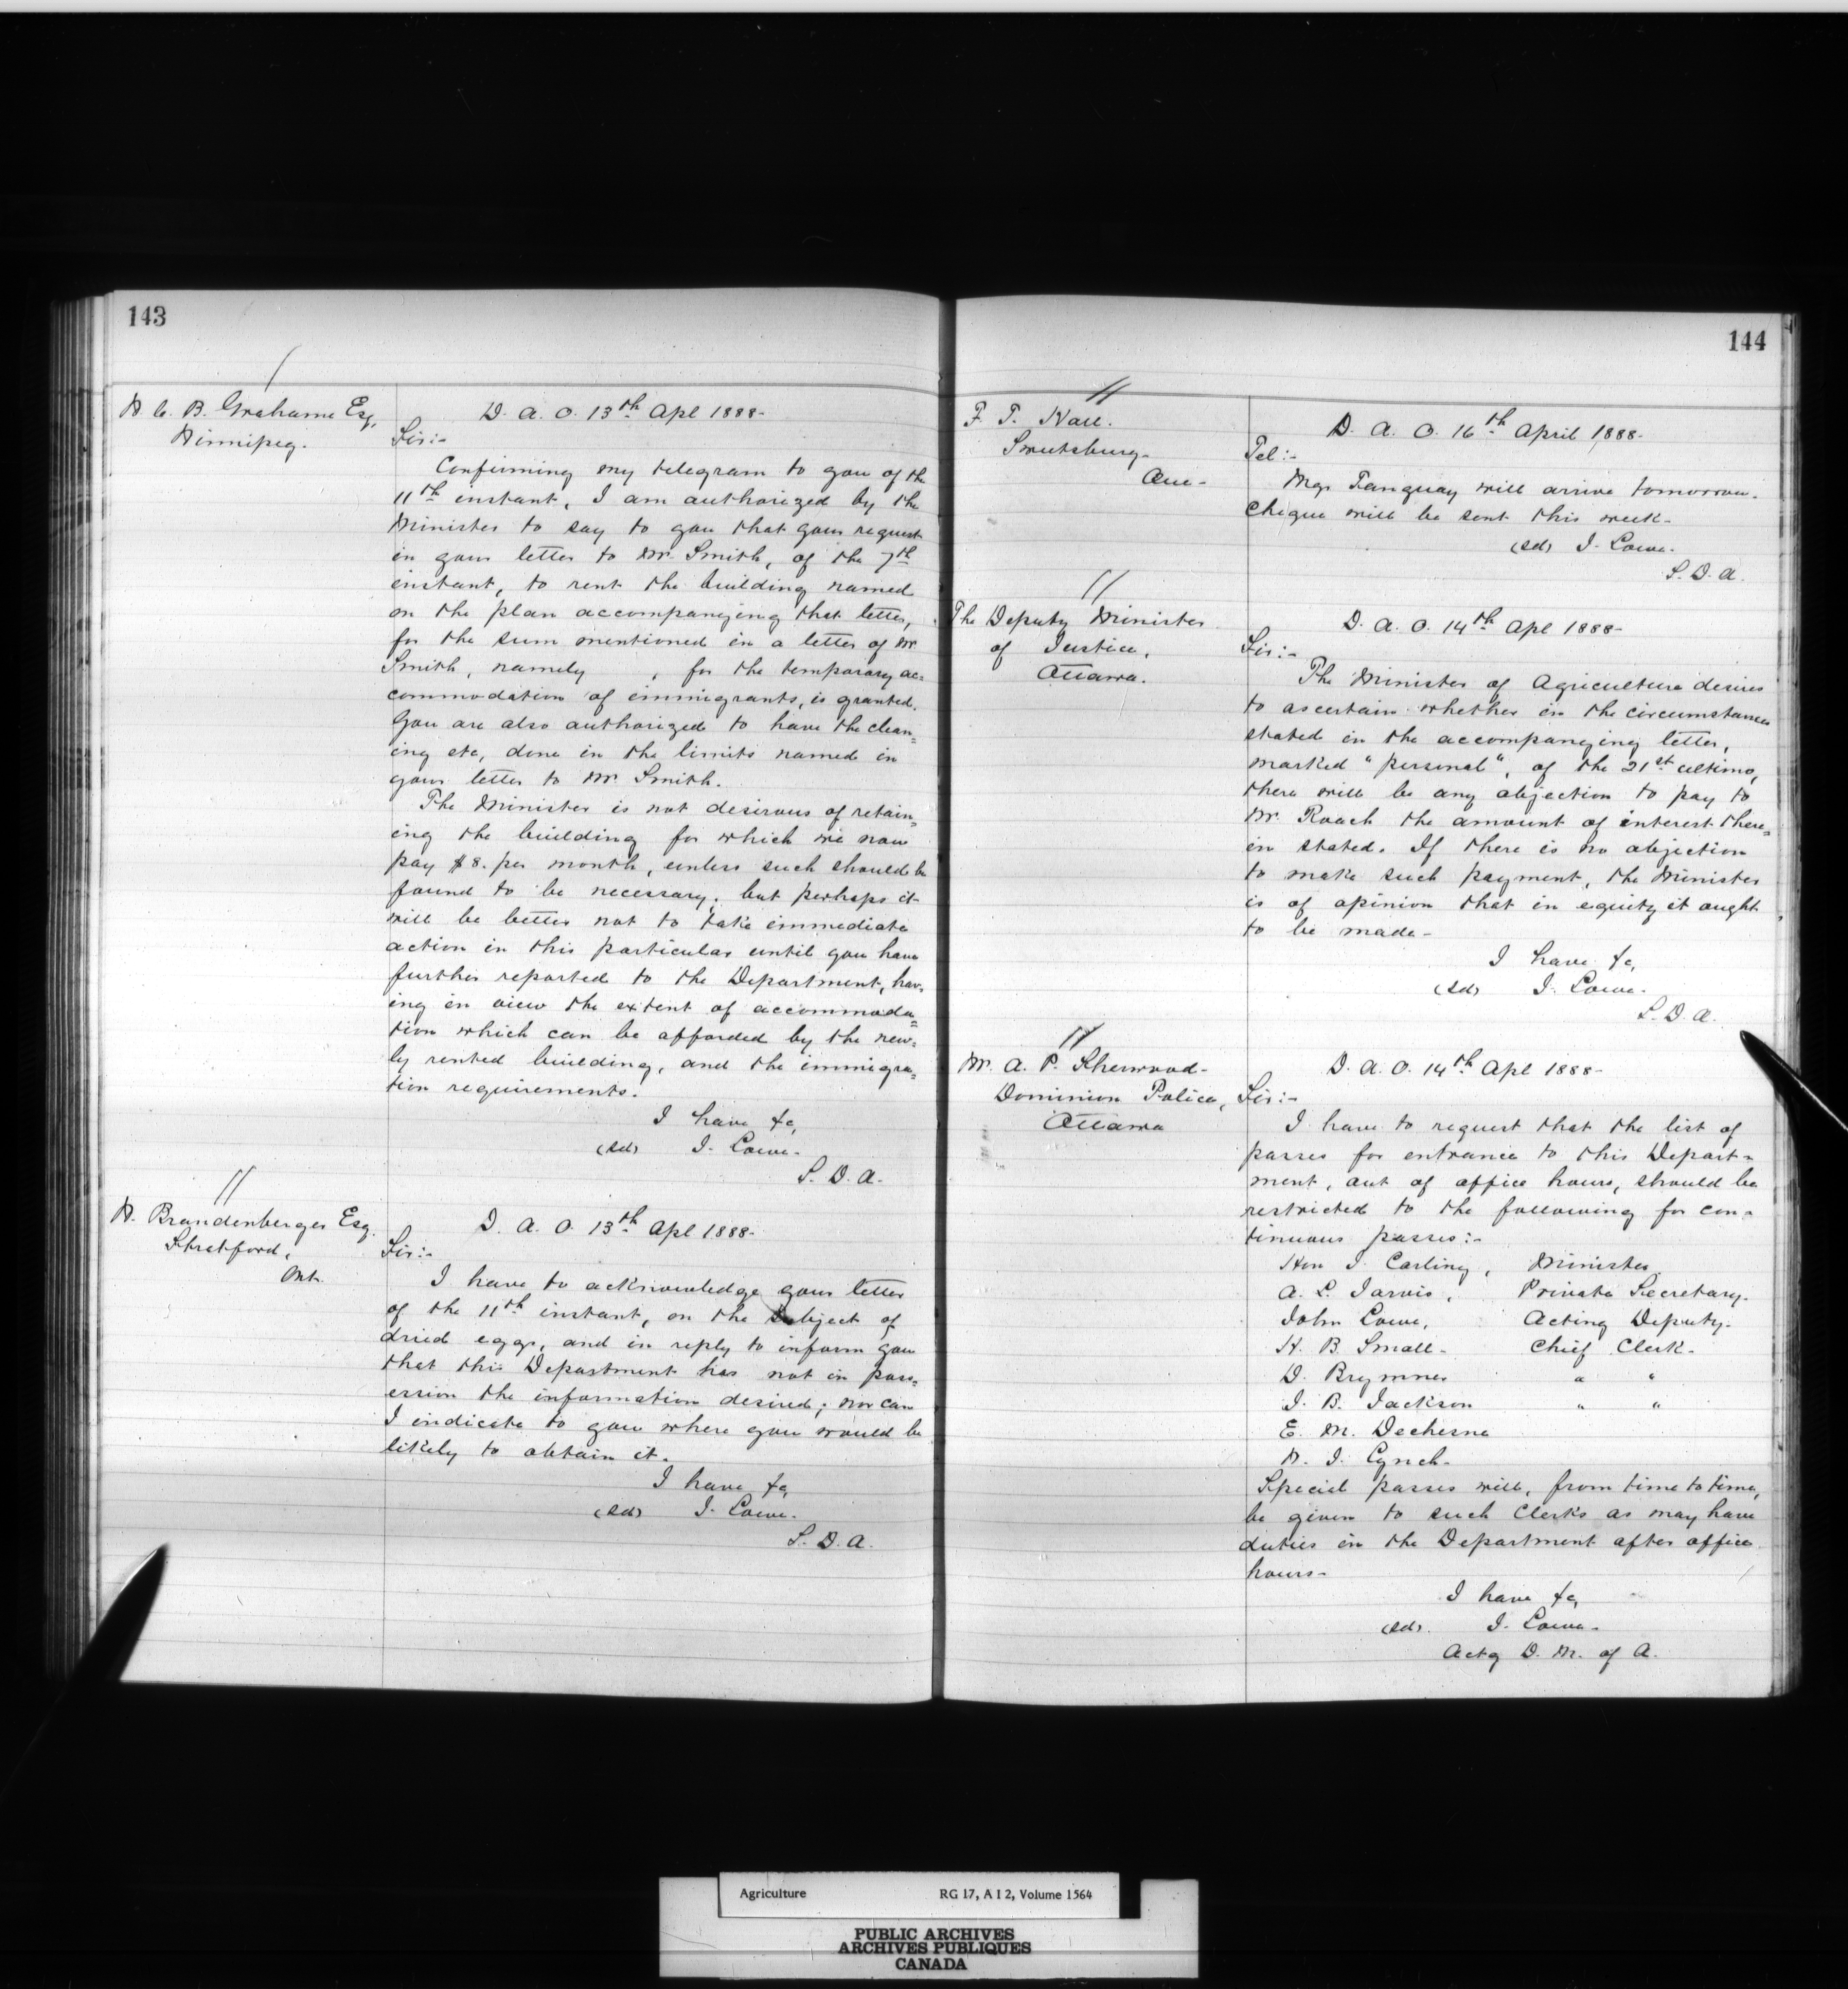 143
W. C. B. Grahame Esq,
Winnipeg.
D. A. O. 13th Apl 1888-
Sir:-
Confirming my telegram to you of the
11th instant, I am authorized by the
Minister to say to you that your request
in your letter to Mr. Smith, of the 7th
instant, to rent the building named
on the plan accompanying that letter,
for the sum mentioned in a letter of Mr
Smith, namely , for the temporary ac=
commodation of immigrants, is granted.
You are also authorized to have the clean=
ing etc, done in the limits named in
your letter to Mr Smith.
The Minister is not desirous of retain=
ing the building for which we now
pay $8. per month, unless such should be
found to be necessary; but perhaps it
will be better not to take immediate
action in this particular until you have
further reported to the Department, hav=
ing in view the extent of accommoda=
tion which can be afforded by the new=
ly rented building, and the immigra=
tion requirements.
I have &c,
(Sd) J. Lowe.
S. D. A.
W. Brandenberger Esq.
Stratford,
Ont.
D. A. O. 13th Apl 1888-
Sir:-
I have to acknowledge your letter
of the 11th instant, on the subject of
dried eggs, and in reply to inform you
that this Department has not in poss=
ession the information desired; nor can
I indicate to you where you would be
likely to obtain it.
I have &c,
(Sd) J. Lowe.
S. D. A.
144
F. T. Hall.
Sweetsburg-
Que-
D. A. O. 16th April 1888-
Tel:-
Mgr Tanguay will arrive tomorrow.
Cheque will be sent this week-
(Sd) J. Lowe.
S. D. A.
The Deputy Minister
of Justice,
Ottawa.
D. A. O. 14th Apl 1888-
Sir:-
The Minister of Agriculture desires
to ascertain whether in the circumstances
stated in the accompanying letter,
marked "personal", of the 21st ultimo,
there will be any objection to pay to
Mr. Roach the amount of interest there=
in stated. If there is no objection
to make such payment, the Minister
is of opinion that in equity it ought
to be made-
I have &c,
(Sd) J. Lowe.
S. D. A.
Mr. A. P. Sherwood-
Dominion Police,
Ottawa
D. A. O. 14th Apl 1888-
Sir:-
I have to request that the list of
passes for entrance to this Depart=
ment, out of office hours, should be
restricted to the following for con=
tinuous passes:-
Hon J. Carling, Minister.
A. L. Jarvis, Private Secretary.
John Lowe, Acting Deputy.
H. B. Small- Chief Clerk-
D. Brymner " "
J. B. Jackson " "
E. M. Dechesne
W. J. Lynch-
Special passes will, from time to time,
be given to such Clerks as may have
duties in the Department after office
hours-
I have &c,
(Sd). J. Lowe-
Actg D. M. of A.
Agriculture RG 17, A I 2, Volume 1564
PUBLIC ARCHIVES
ARCHIVES PUBLIQUES
CANADA